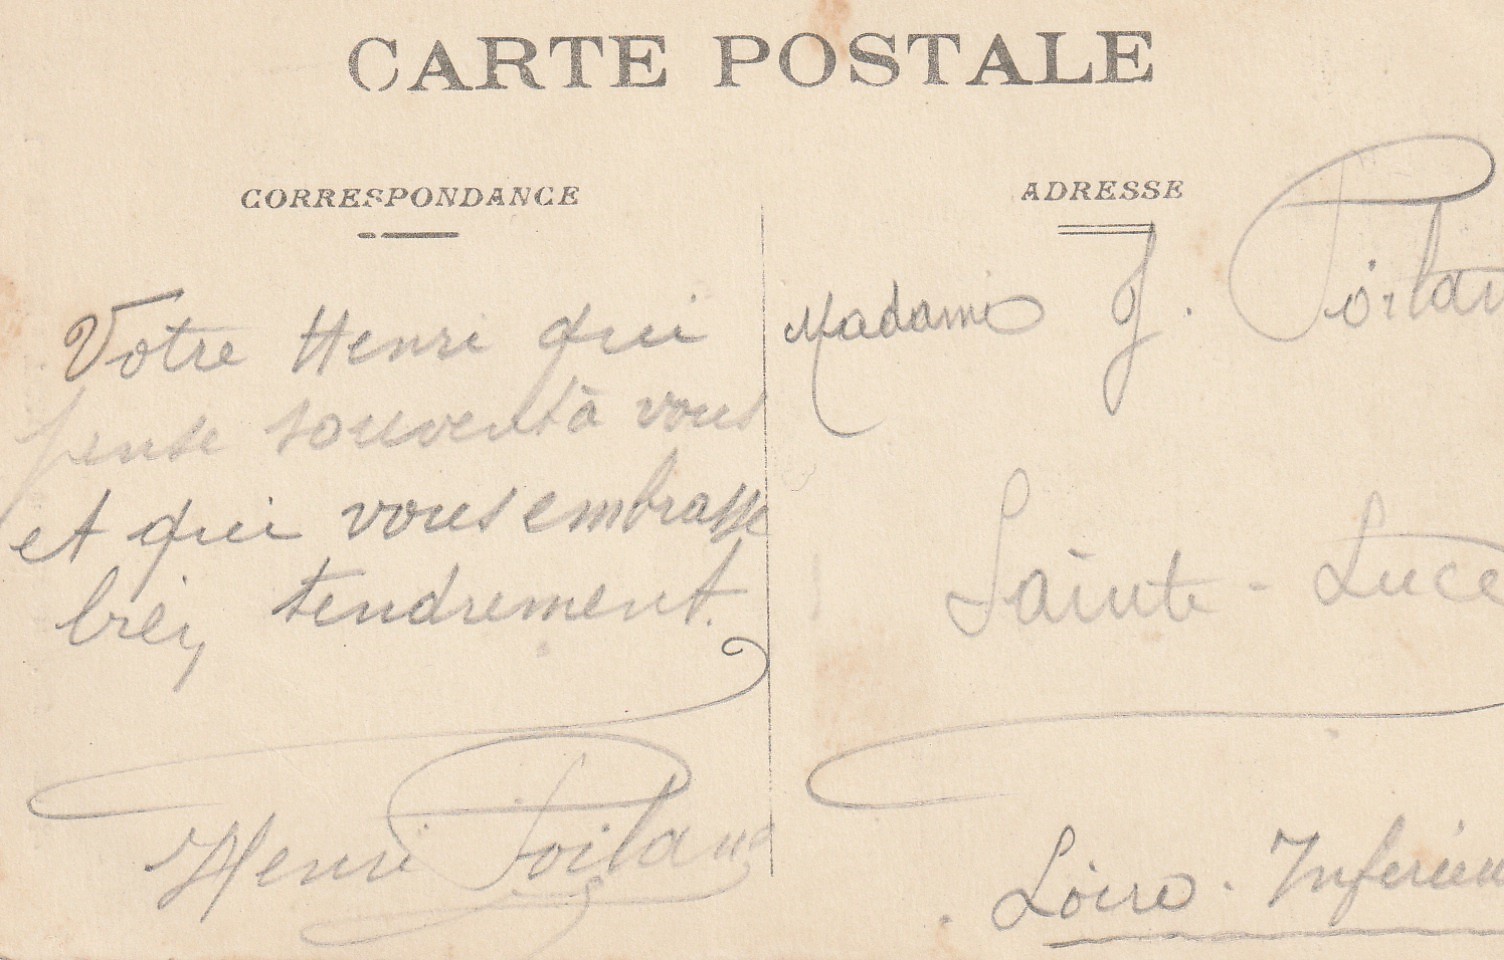 CARTE POSTALE
CORRESPONDANCE
Votre Henri qui
pense souvent à vous
et qui vous embrasse
bien tendrement.
Henri
ADRESSE
Madame J.
Sainte-Luce
Loire. Inférieu